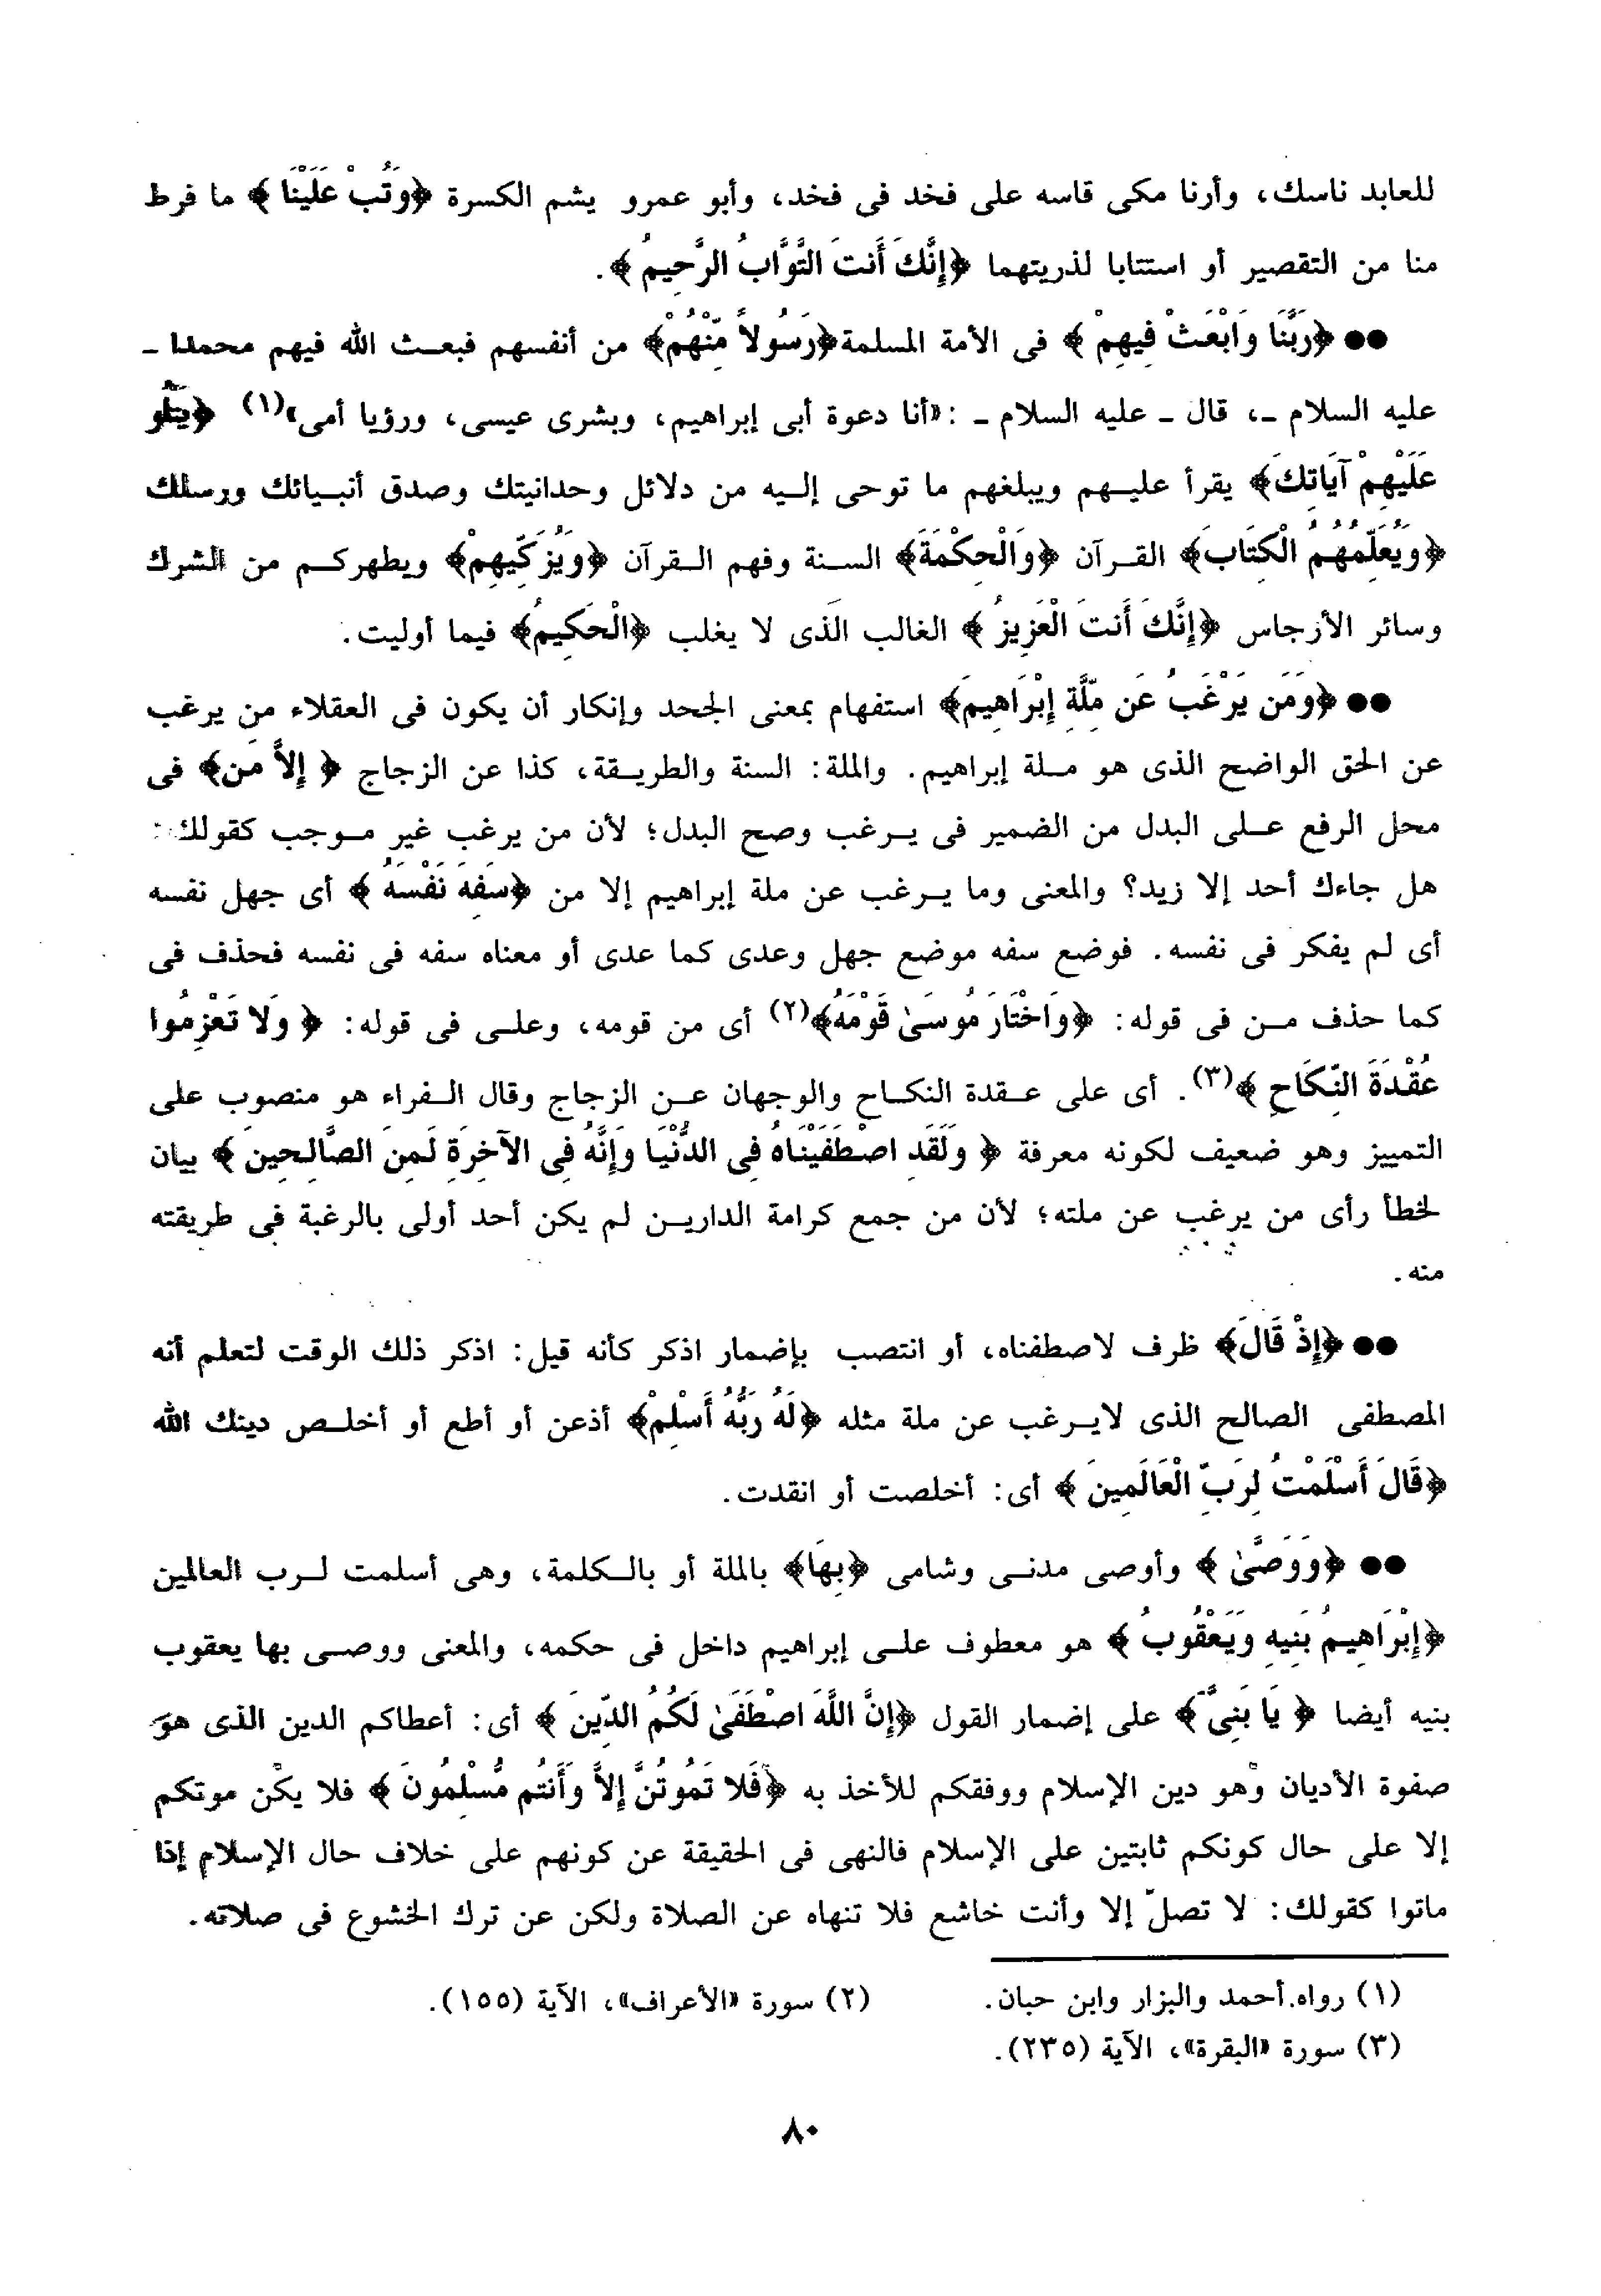 للعابد ناسك، وأرنا مكى قاسه على فخد فى فخد، وأبو عمرو يشم الكسرة ﴿وَتُبْ عَلَيْنَا﴾ ما فرط
منا من التقصير أو استتابا لذريتهما ﴿إِنَّكَ أَنتَ التَّوَّابُ الرَّحِيمُ﴾.
●● ﴿رَبَّنَا وَابْعَثْ فِيهِمْ﴾ فى الأمة المسلمة ﴿رَسُولاً مِّنْهُمْ﴾ من أنفسهم فبعث الله فيهم محمدا -
عليه السلام -، قال - عليه السلام - : «أنا دعوة أبى إبراهيم، وبشرى عيسى، ورؤيا أمى»(١) ﴿يَتْلُو
عَلَيْهِمْ آيَاتِكَ﴾ يقرأ عليهم ويبلغهم ما توحى إليه من دلائل وحدانيتك وصدق أنبيائك ورسلك
﴿وَيُعَلِّمُهُمُ الْكِتَابَ﴾ القرآن ﴿وَالْحِكْمَةَ﴾ السنة وفهم القرآن ﴿وَيُزَكِّيهِمْ﴾ ويطهركم من الشرك
وسائر الأرجاس ﴿إِنَّكَ أَنتَ الْعَزِيزُ﴾ الغالب الذى لا يغلب ﴿الْحَكِيمُ﴾ فيما أوليت.
●● ﴿وَمَن يَرْغَبُ عَن مِّلَّةِ إِبْرَاهِيمَ﴾ استفهام بمعنى الجحد وإنكار أن يكون فى العقلاء من يرغب
عن الحق الواضح الذى هو ملة إبراهيم. والملة: السنة والطريقة، كذا عن الزجاج ﴿إِلاَّ مَن﴾ فى
محل الرفع على البدل من الضمير فى يرغب وصح البدل؛ لأن من يرغب غير موجب كقولك:
هل جاءك أحد إلا زيد؟ والمعنى وما يرغب عن ملة إبراهيم إلا من ﴿سَفِهَ نَفْسَهُ﴾ أى جهل نفسه
أى لم يفكر فى نفسه. فوضع سفه موضع جهل وعدى كما عدى أو معناه سفه فى نفسه فحذف فى
كما حذف من فى قوله: ﴿وَاخْتَارَ مُوسَىٰ قَوْمَهُ﴾(٢) أى من قومه، وعلى فى قوله: ﴿وَلا تَعْزِمُوا
عُقْدَةَ النِّكَاحِ﴾(٣). أى على عقدة النكاح والوجهان عن الزجاج وقال الفراء هو منصوب على
التمييز وهو ضعيف لكونه معرفة ﴿وَلَقَدِ اصْطَفَيْنَاهُ فِي الدُّنْيَا وَإِنَّهُ فِي الآخِرَةِ لَمِنَ الصَّالِحِينَ﴾ بيان
لخطأ رأى من يرغب عن ملته؛ لأن من جمع كرامة الدارين لم يكن أحد أولى بالرغبة فى طريقته
منه.
●● ﴿إِذْ قَالَ﴾ ظرف لاصطفناه، أو انتصب بإضمار اذكر كأنه قيل: اذكر ذلك الوقت لتعلم أنه
المصطفى الصالح الذى لايرغب عن ملة مثله ﴿لَهُ رَبُّهُ أَسْلِمْ﴾ أذعن أو أطع أو أخلص دينك الله
﴿قَالَ أَسْلَمْتُ لِرَبِّ الْعَالَمِينَ﴾ أى: أخلصت أو انقدت.
●● ﴿وَوَصَّىٰ﴾ وأوصى مدنى وشامى ﴿بِهَا﴾ بالملة أو بالكلمة، وهى أسلمت لرب العالمين
﴿إِبْرَاهِيمُ بَنِيهِ وَيَعْقُوبُ﴾ هو معطوف على إبراهيم داخل فى حكمه، والمعنى ووصى بها يعقوب
بنيه أيضا ﴿يَا بَنِيَّ﴾ على إضمار القول ﴿إِنَّ اللَّهَ اصْطَفَىٰ لَكُمُ الدِّينَ﴾ أى: أعطاكم الدين الذى هو
صفوة الأديان وهو دين الإسلام ووفقكم للأخذ به ﴿فَلا تَمُوتُنَّ إِلاَّ وَأَنتُم مُّسْلِمُونَ﴾ فلا يكن موتكم
إلا على حال كونكم ثابتين على الإسلام فالنهى فى الحقيقة عن كونهم على خلاف حال الإسلام إذا
ماتوا كقولك: لا تصلّ إلا وأنت خاشع فلا تنهاه عن الصلاة ولكن عن ترك الخشوع فى صلاته.
(١) رواه أحمد والبزار وابن حبان. (٢) سورة «الأعراف»، الآية (١٥٥).
(٣) سورة «البقرة»، الآية (٢٣٥).
٨٠